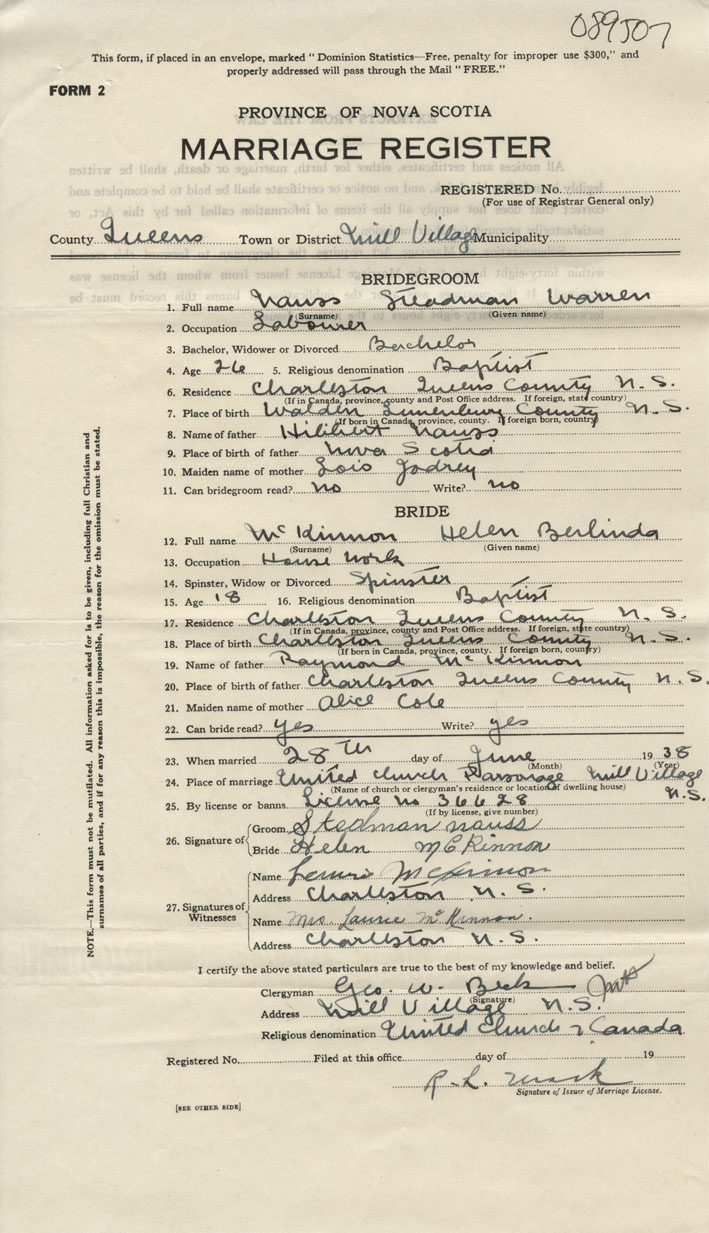 089507
This form, if placed in an envelope, marked "Dominion Statistics—Free, penalty for improper use $300," and
properly addressed will pass through the Mail "FREE."
FORM 2
PROVINCE OF NOVA SCOTIA
MARRIAGE REGISTER
REGISTERED No.
(For use of Registrar General only)
County Queens Town or District Mill Village Municipality
BRIDEGROOM
1. Full name Nauss Steadman Warren
(Surname) (Given name)
2. Occupation Labourer
3. Bachelor, Widower or Divorced Bachelor
4. Age 26 5. Religious denomination Baptist
6. Residence Charleston Queens County N.S.
(If in Canada, province, county and Post Office address. If foreign, state country)
7. Place of birth Walden Lunenburg County N.S.
(If born in Canada, province, county. If foreign born, country)
8. Name of father Hibbert Nauss
9. Place of birth of father Nova Scotia
10. Maiden name of mother Lois Jodrey
11. Can bridegroom read? no Write? no
BRIDE
12. Full name McKinnon Helen Berlinda
(Surname) (Given name)
13. Occupation House Work
14. Spinster, Widow or Divorced Spinster
15. Age 18 16. Religious denomination Baptist
17. Residence Charleston Queens County N.S.
(If in Canada, province, county and Post Office address. If foreign, state country)
18. Place of birth Charleston Queens County N.S.
(If born in Canada, province, county. If foreign born, country)
19. Name of father Raymond McKinnon
20. Place of birth of father Charleston Queens County N.S.
21. Maiden name of mother Alice Cole
22. Can bride read? yes Write? yes
23. When married 28th day of June 1938
(Month) (Year)
24. Place of marriage United church Parsonage Mill Village
(Name of church or clergyman's residence or location of dwelling house) N.S.
25. By license or banns License no 36628
(If by license, give number)
26. Signature of
Groom Stedman nauss
Bride Helen McKinnon
27. Signatures of Witnesses
Name McKinnon
Address Charleston N.S.
Name Mrs Laurie McKinnon.
Address Charleston N.S.
I certify the above stated particulars are true to the best of my knowledge and belief.
Clergyman Geo. W. Beck
(Signature)
Address Mill Village N.S.
Religious denomination United Church of Canada
Registered No. Filed at this office day of 19
R. L.
Signature of Issuer of Marriage License.
[SEE OTHER SIDE]
NOTE.—This form must not be mutilated. All information asked for is to be given, including full Christian and
surnames of all parties, and if for any reason this is impossible, the reason for the omission must be stated.